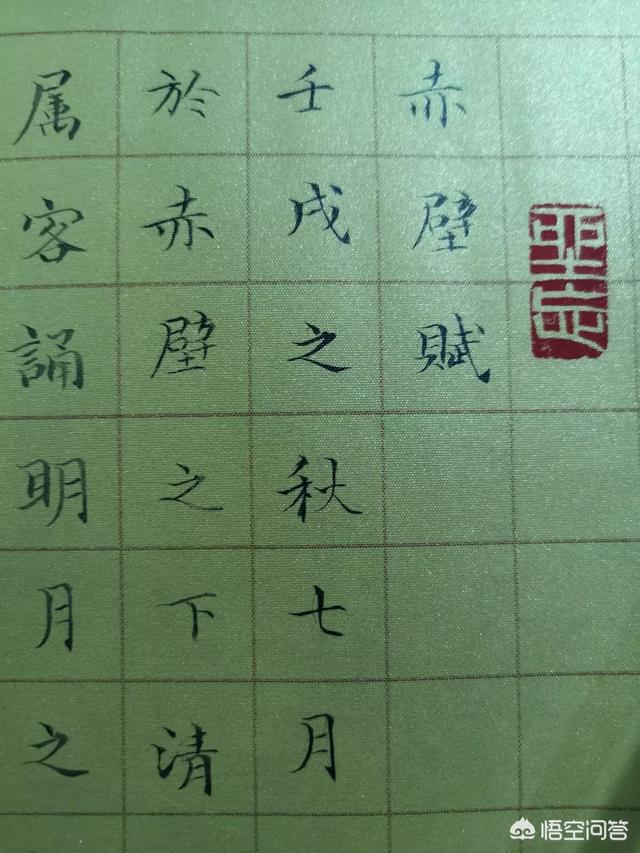 赤壁賦
壬戌之秋七月
於赤壁之下清
属客誦明月之
悟空问答